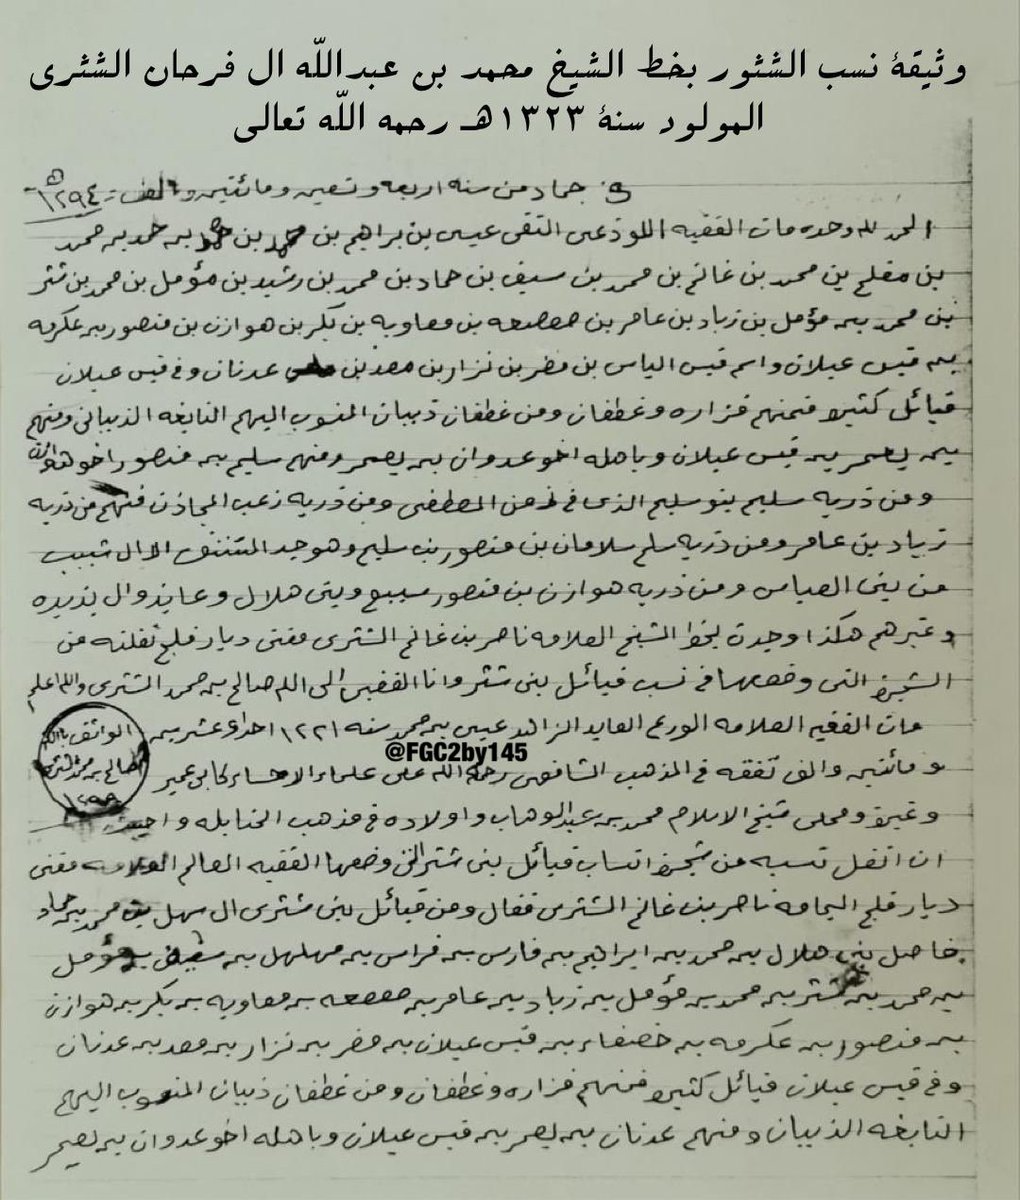 وثيقة نسب الشثور بخط الشيخ محمد بن عبدالله ال فرحان الشثرى
المولود سنة ١٣٢٣هـ رحمه الله تعالى
في جماد من سنه اربعه وتسعين ومائتين والف ١٢٩٤هـ
الحمد لله وحده مات الفقيه اللوذعى التقى عيسى بن براهيم بن حمد بن حمد بن حمد بن محمد
بن مفلح بن محمد بن غانم بن محمد بن سيف بن حماد بن محمد بن رشيد بن مؤمل بن محمد بن شثر
بن محمد بن مؤمل بن زياد بن عامر بن صعصعه بن معاويه بن بكر بن هوازن بن منصور بن عكرمه
بن قيس عيلان واسم قيس الياس بن مضر بن نزار بن معد بن عدنان وفي قيس عيلان
قبائل كثيره فمنهم فزاره وغطفان ومن غطفان ذبيان المنسوب اليهم النابغه الذبيانى ومنهم
بن يعصر بن قيس عيلان وباهله اخو عدوان بن يعصر ومنهم سليم بن منصور اخو هوازن
ومن ذريه سليم بنو سليم الذى في زمن المصطفى ومن ذريه زعب فمنهم من ذريه
زياد بن عامر ومن ذريه سلم سلامان بن منصور بن سليم وهو جد المنتفق الا ال شبيب
من بنى العباس ومن ذريه هوازن بن منصور سبيع وبنى هلال وعايذ وال يزيده
وغيرهم هكذا وجدت بخط الشيخ العلامه ناصر بن غانم الشثرى مفتى ديار فلج نقلته من
الشجره التى وضعها في نسب قبائل بنى شثر وانا الفقير الى الله صالح بن محمد الشثرى والله اعلم
مات الفقيه العلامه الورع العابد الزاهد عيسى بن محمد سنه ١٢٢١ احدا وعشرين
الواثق بالله
صالح بن محمد الشثرى
@FGC2by145
ومائتين والف تفقه في المذهب الشافعى رحمه الله على علماء الاحساء كابى عمير
وغيره وعلى شيخ الاسلام محمد بن عبدالوهاب واولاده في مذهب الحنابله واحببت
ان انقل نسبه من شجرة انساب قبائل بنى شثر التى وضعها الفقيه العالم العلامه مفتى
ديار فلج اليمامه ناصر بن غانم الشثرى فقال ومن قبائل بنى شثرى ال سهل بن محمد بن حماد
بن هلال بن محمد بن ابراهيم بن فارس بن فراس بن مهلهل بن بن مؤمل
بن محمد بن شثر بن محمد بن مؤمل بن زياد بن عامر بن صعصعه بن معاويه بن بكر بن هوازن
بن منصور بن عكرمه بن خصفاء بن قيس عيلان بن مضر بن نزار بن معد بن عدنان
وفي قيس عيلان قبائل كثيره فمنهم فزاره وغطفان ومن غطفان ذبيان المنسوب اليهم
النابغه الذبيان ومنهم عدنان بن يعصر بن قيس عيلان وباهله اخو عدوان بن يعصر